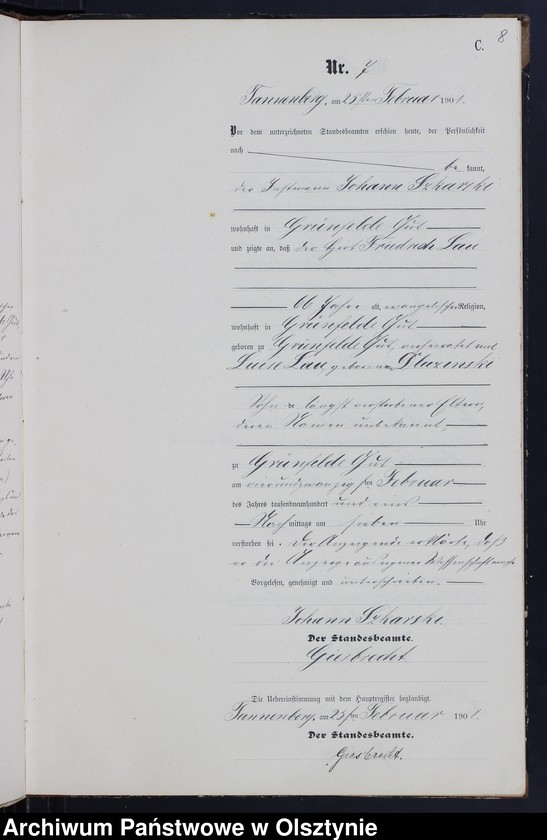 8
C.
Nr. 7
Tannenberg, am 25ten Februar 1901.
Vor dem unterzeichneten Standesbeamten erschien heute, der Persönlichkeit
nach be kannt,
der Instmann Johann Szharski
wohnhaft in Grünfelde Gut
und zeigte an, daß der Friedrich Lau
66 Jahre alt, evangelischer Religion,
wohnhaft in Grünfelde Gut
geboren zu Grünfelde Gut, verheiratet mit
Luise Lau, geborenen Dluzenski
Sohn längst verstorbener Eltern,
deren Namen unbekannt,
zu Grünfelde Gut
am vierundzwanzigsten Februar
des Jahres tausendneunhundert und eins
Nach mittags um sieben Uhr
verstorben sei. Der Anzeigende erklärte, daß
er die Anzeige aus eigener Wissenschaft mache
Vorgelesen, genehmigt und unterschrieben.
Johann Szharski.
Der Standesbeamte.
Giesbrecht.
Die Uebereinstimmung mit dem Hauptregister beglaubigt.
Tannenberg, am 25ten Februar 1901.
Der Standesbeamte.
Giesbrecht.
Archiwum Państwowe w Olsztynie